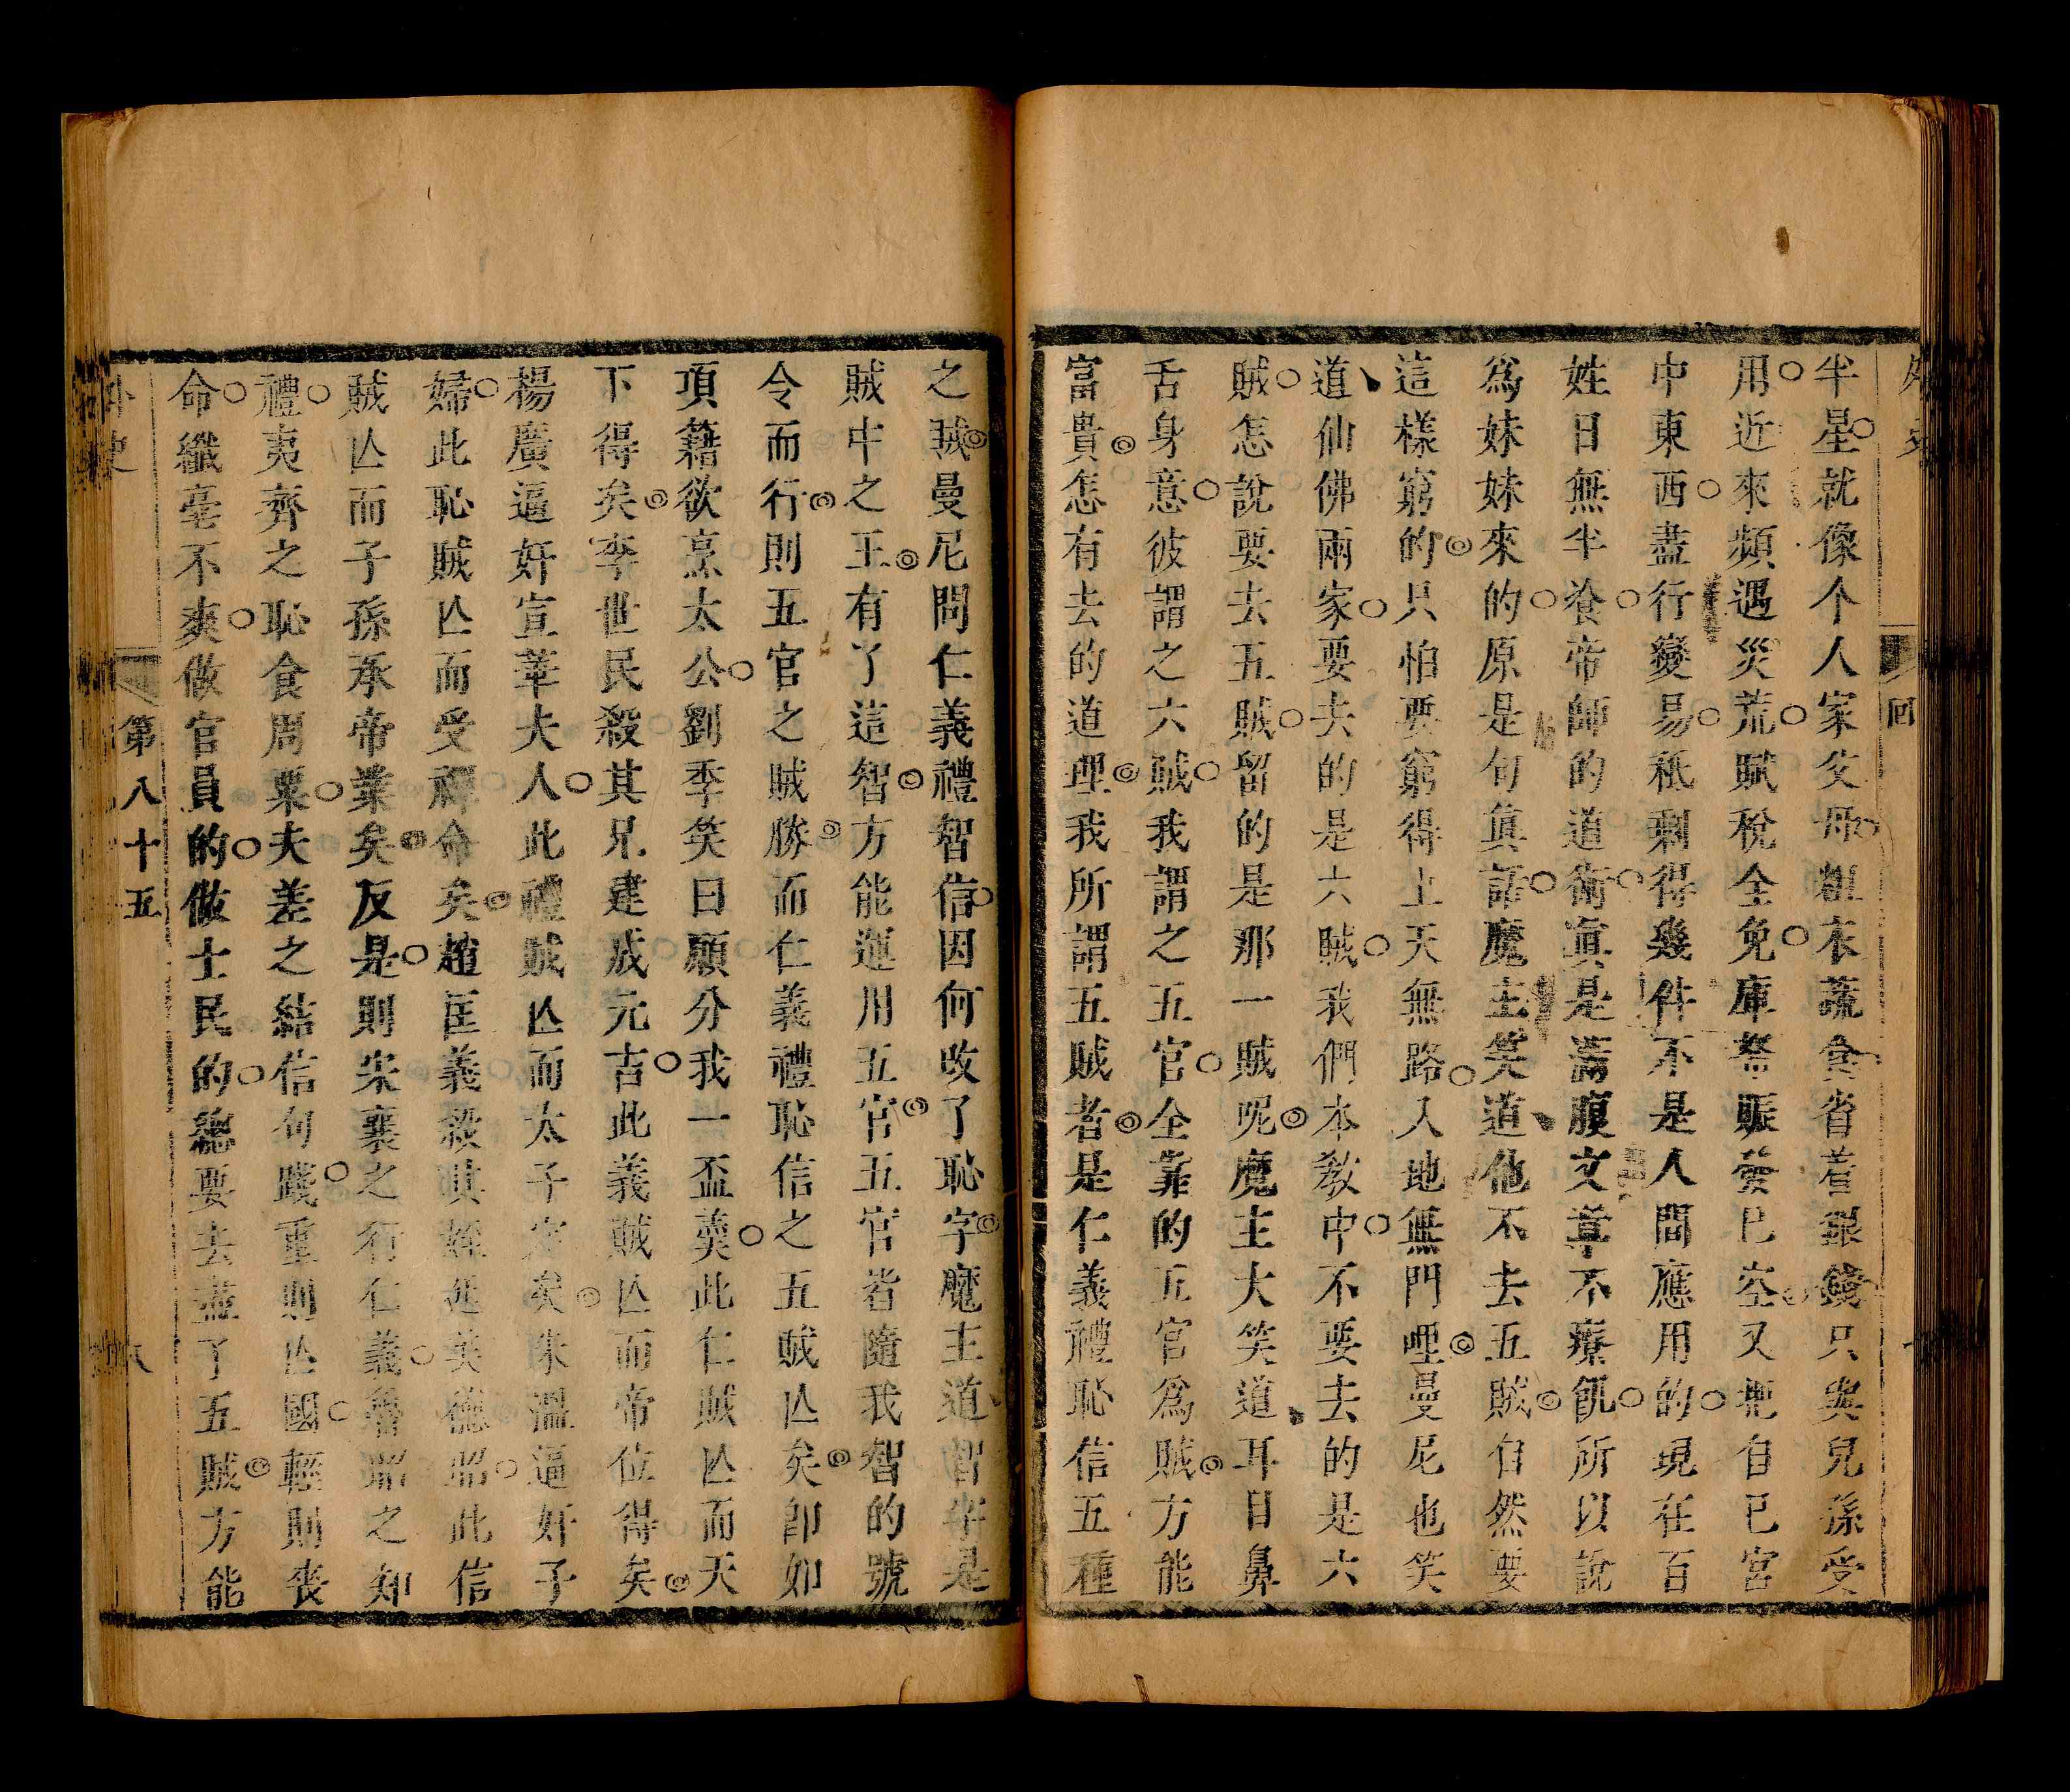 半星就像个人家父母粗衣蔬食省着銀錢只與兒孫受
用近來頻遇災荒賦稅全免庫帑賑發已空又把自已宮
中東西盡行變易秪剩得幾件不是人間應用的現在百
姓日無半飡帝師的道術眞是滿腹文章不療飢所以說
爲妹妹來的原是句眞話魔主笑道他不去五賊自然要
這樣窮的只怕要窮得上天無路入地無門哩曼尼也笑
道仙佛兩家要去的是六賊我們本敎中不要去的是六
賊怎說要去五賊畱的是那一賊呢魔主大笑道耳目鼻
舌身意彼謂之六賊我謂之五官全靠的五官爲賊方能
富貴怎有去的道理我所謂五賊者是仁義禮恥信五種
之賊曼尼問仁義禮智信因何改了恥字魔主道智字是
賊中之王有了這智方能運用五官五官皆隨我智的號
令而行則五官之賊勝而仁義禮恥信之五賊亾矣卽如
項籍欲烹太公劉季笑曰願分我一盃羹此仁賊亾而天
下得矣李世民殺其兄建成元吉此義賊亾而帝位得矣
楊廣逼奸宣華夫人此禮賊亾而太子定矣朱溫逼奸子
婦此恥賊亾而受禪命矣趙匡義殺其姪延美德昭此信
賊亾而子孫承帝業矣反是則宋襄之行仁義魯昭之知
禮夷齊之恥食周粟夫差之結信句踐重則亾國輕則喪
命纖毫不爽做官員的做士民的總要去盡了五賊方能
外史
第八十五
回
八